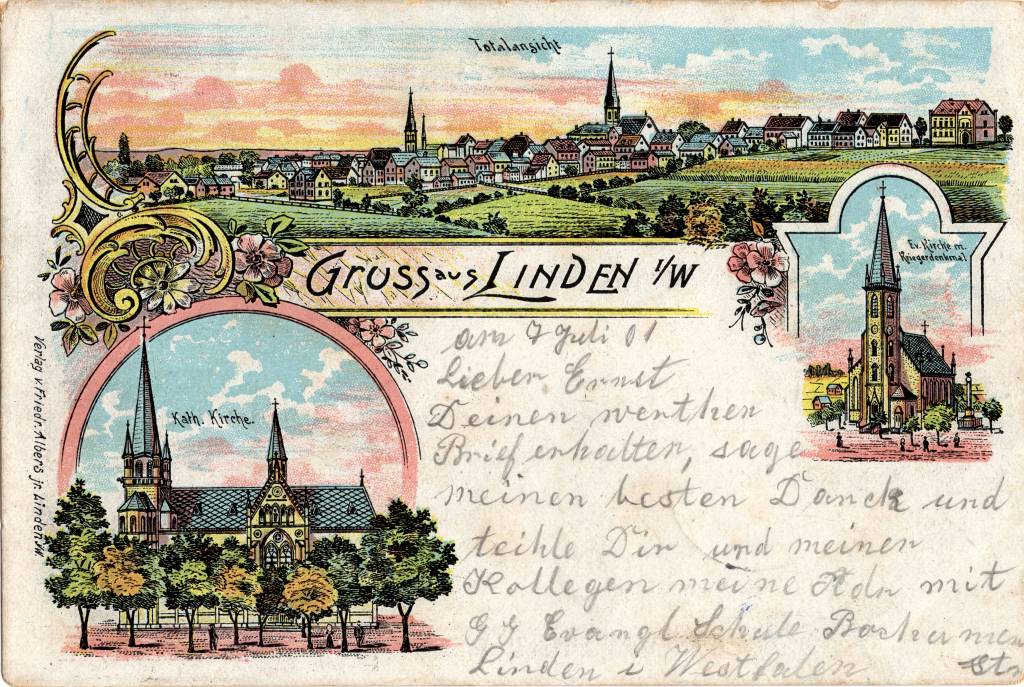 Totalansicht
Ev. Kirche m.
Kriegerdenkmal
Gruss aus Linden i/W
Kath. Kirche.
Verlag v. Friedr. Albers jr. Linden i/W
am 7 Juli 01
Lieber Ernst
Deinen werthen
Brief erhalten, sage
meinen besten Danck und
teihle Dir und meinen
Kollegen meine Adr mit
G J Evangl. Schule
Linden i Westfalen